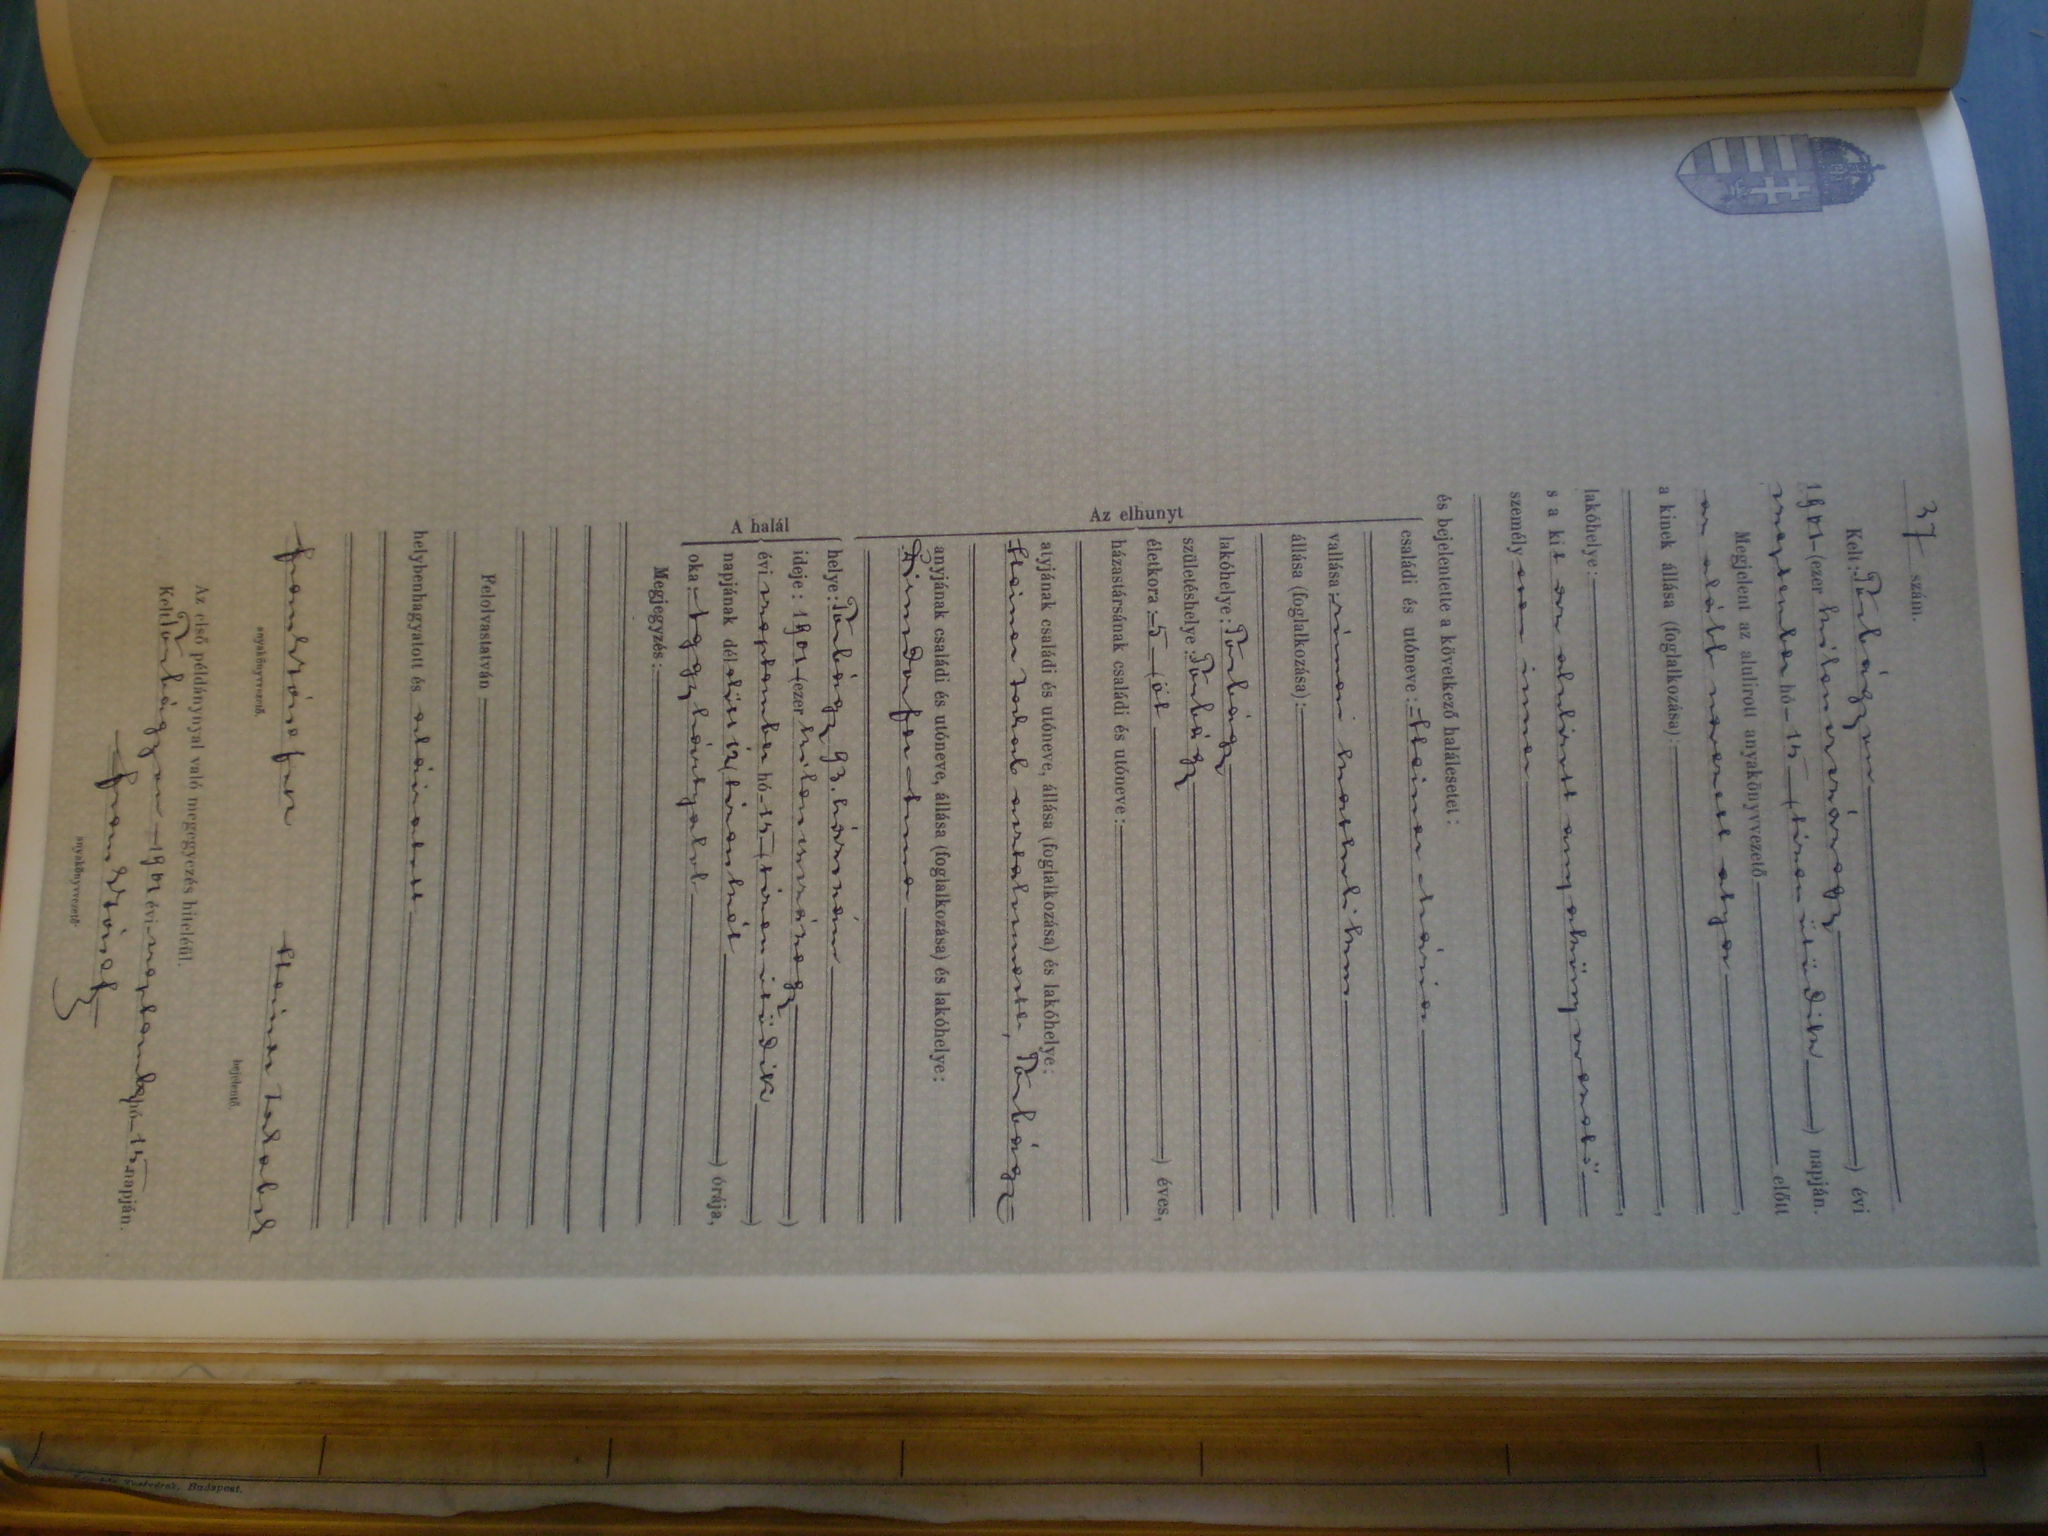 37 szám.
Kelt: Törbágyon
1901 (ezer kilenczszázegy) évi
szeptember hó 15 (tizenötödik) napján.
Megjelent az alulirott anyakönyvvezető előtt
az alább nevezett atya,
a kinek állása (foglalkozása):
lakóhelye:
s a kit az alulirott anyakönyvvezető
személyesen ismer
és bejelentette a következő halálesetet:
Az elhunyt
családi és utóneve: Steiner Mária
vallása: római katholikus
állása (foglalkozása):
lakóhelye: Törbágy
születéshelye: Törbágy
életkora: 5 (öt) éves,
házastársának családi és utóneve:
atyjának családi és utóneve, állása (foglalkozása) és lakóhelye:
Steiner Jakab asztalmester, Törbágy
anyjának családi és utóneve, állása (foglalkozása) és lakóhelye:
Anna
A halál
helye: Törbágy 93. házszám
ideje: 1901 (ezer kilenczszázegy)
évi szeptember hó 15 (tizenötödik)
napjának délelőtt 12 (tizenkét) órája,
oka: Agyhártyalob
Megjegyzés:
Felolvastatván
helybenhagyatott és aláiratott
József Steiner Jakab
anyakönyvvezető. bejelentő.
Az első példánynyal való megegyezés hiteléül.
Kelt Törbágyon 1901 évi szeptember hó 15 napján.
József
anyakönyvvezető.
Testvérek, Budapest.